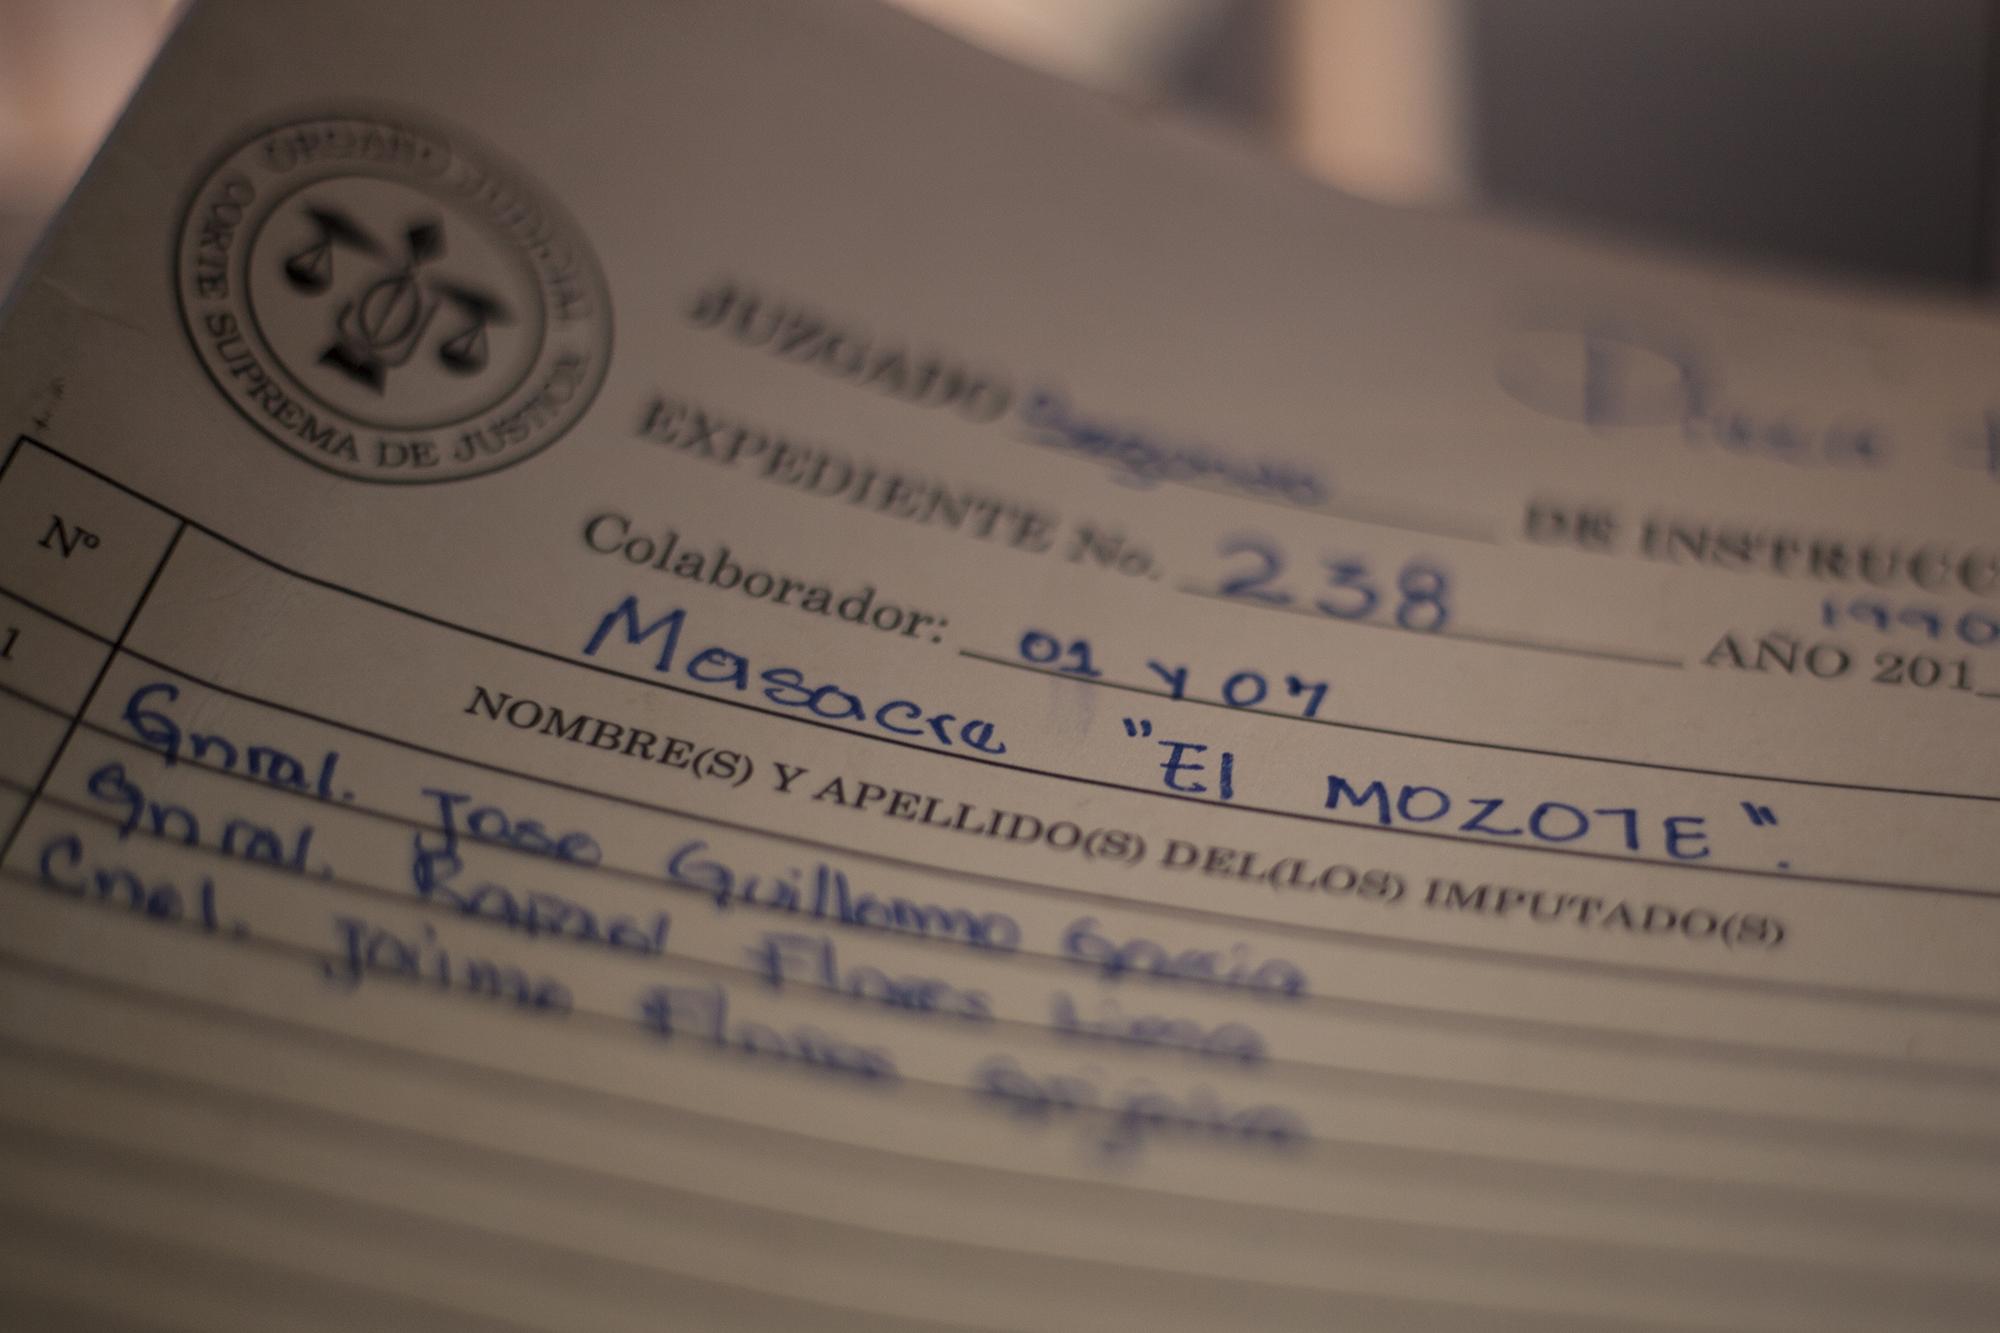 ORGANO JUDICIAL
CORTE SUPREMA DE JUSTICIA
JUZGADO Segundo DE INSTRUCC
EXPEDIENTE No. 238 AÑO 201_ 1990
Colaborador: 01 y 07
Masacre "El MOZOTE".
Nº NOMBRE(S) Y APELLIDO(S) DEL(LOS) IMPUTADO(S)
1 Gnral. Jose Guillermo Garcia
Gnral. Rafael Flores Lima
Cnel. Jaime Flores Grijalva